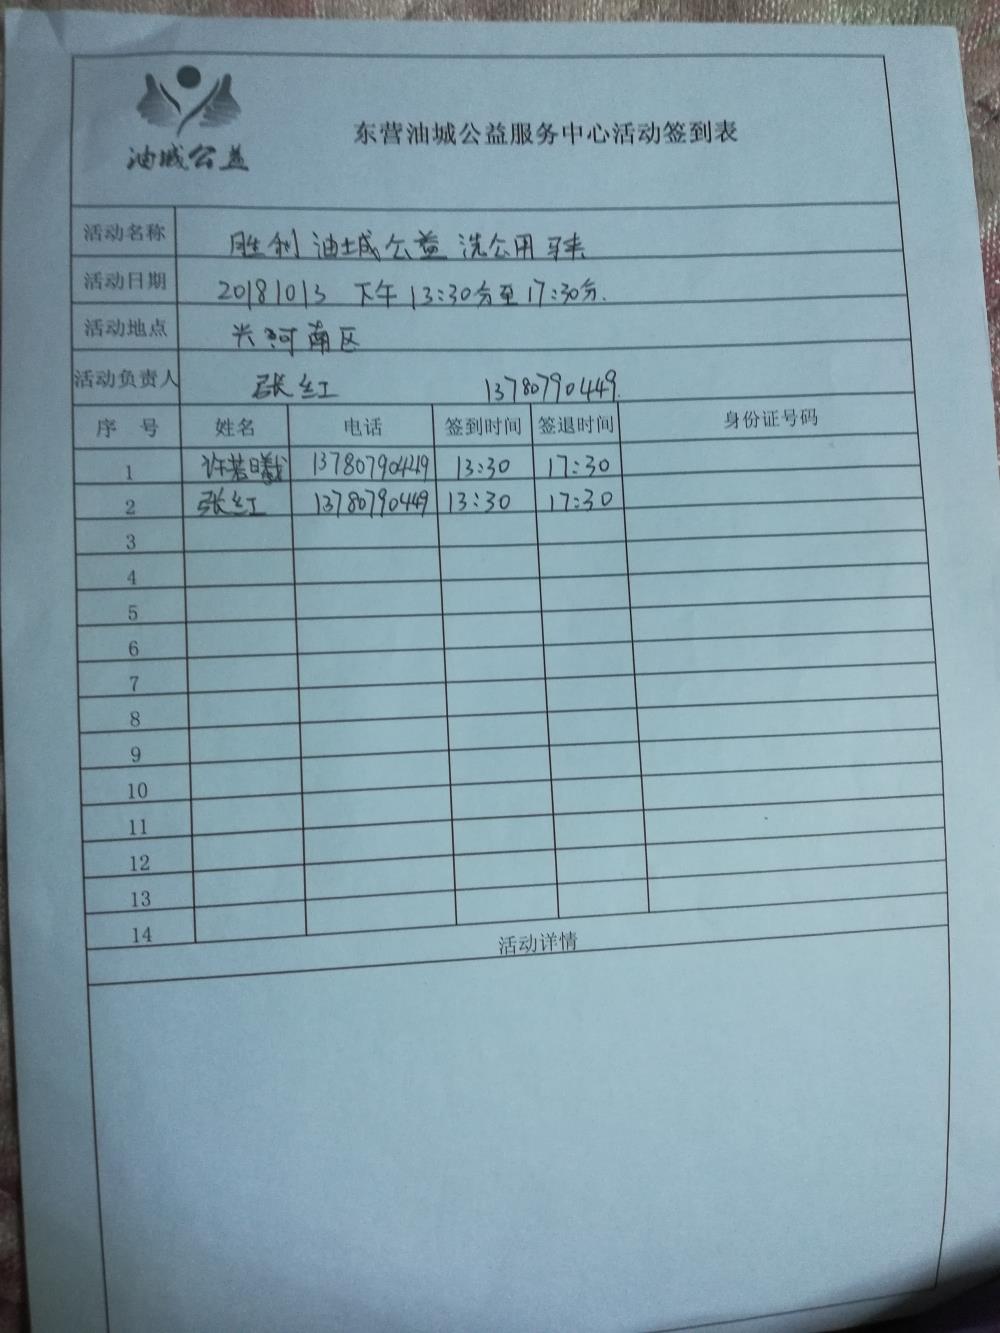 油城公益
东营油城公益服务中心活动签到表
活动名称 胜利油城公益洗公用车
活动日期 20181013 下午13:30分至17:30分.
活动地点 兴河南区
活动负责人 张红 13780790449.
序 号 姓名 电话 签到时间 签退时间 身份证号码
1 许若曦 13780790449 13:30 17:30
2 张红 13780790449 13:30 17:30
3
4
5
6
7
8
9
10
11
12
13
14
活动详情